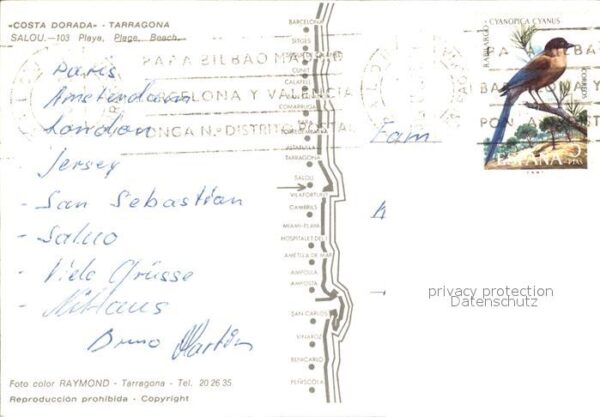 «COSTA DORADA» - TARRAGONA
SALOU.-103 Playa, Plage, Beach.
PARA BILBAO MA
BARCELONA Y VALENCIA
PONGA N.º DISTRITO POSTAL
Paris
Amsterdam
London
Jersey
- San Sebastian
- Saluo
- Viele Grüsse
- Niklaus
Bruno Martin
Foto color RAYMOND - Tarragona - Tel. 20 26 35
Reproducción prohibida - Copyright
BARCELONA
SITGES
CUNIT
CALAFELL
COMARRUGA
TARRAGONA
SALOU
VILAFORTUNY
CAMBRILS
MIAMI-PLAYA
HOSPITALET DEL I.
AMETLLA DE MAR
AMPOLLA
AMPOSTA
SAN CARLOS
VINAROZ
BENICARLO
PEÑISCOLA
Fam
CYANOPICA CYANUS
RABILARGO
CORREOS
ESPAÑA 2 PTAS
privacy protection
Datenschutz